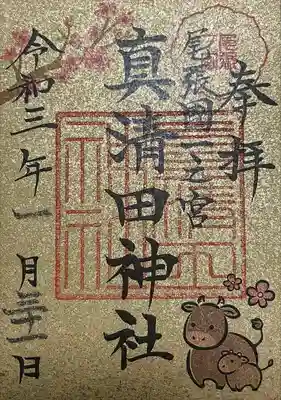 奉拝
尾張国一之宮
真清田神社
令和三年一月三十一日